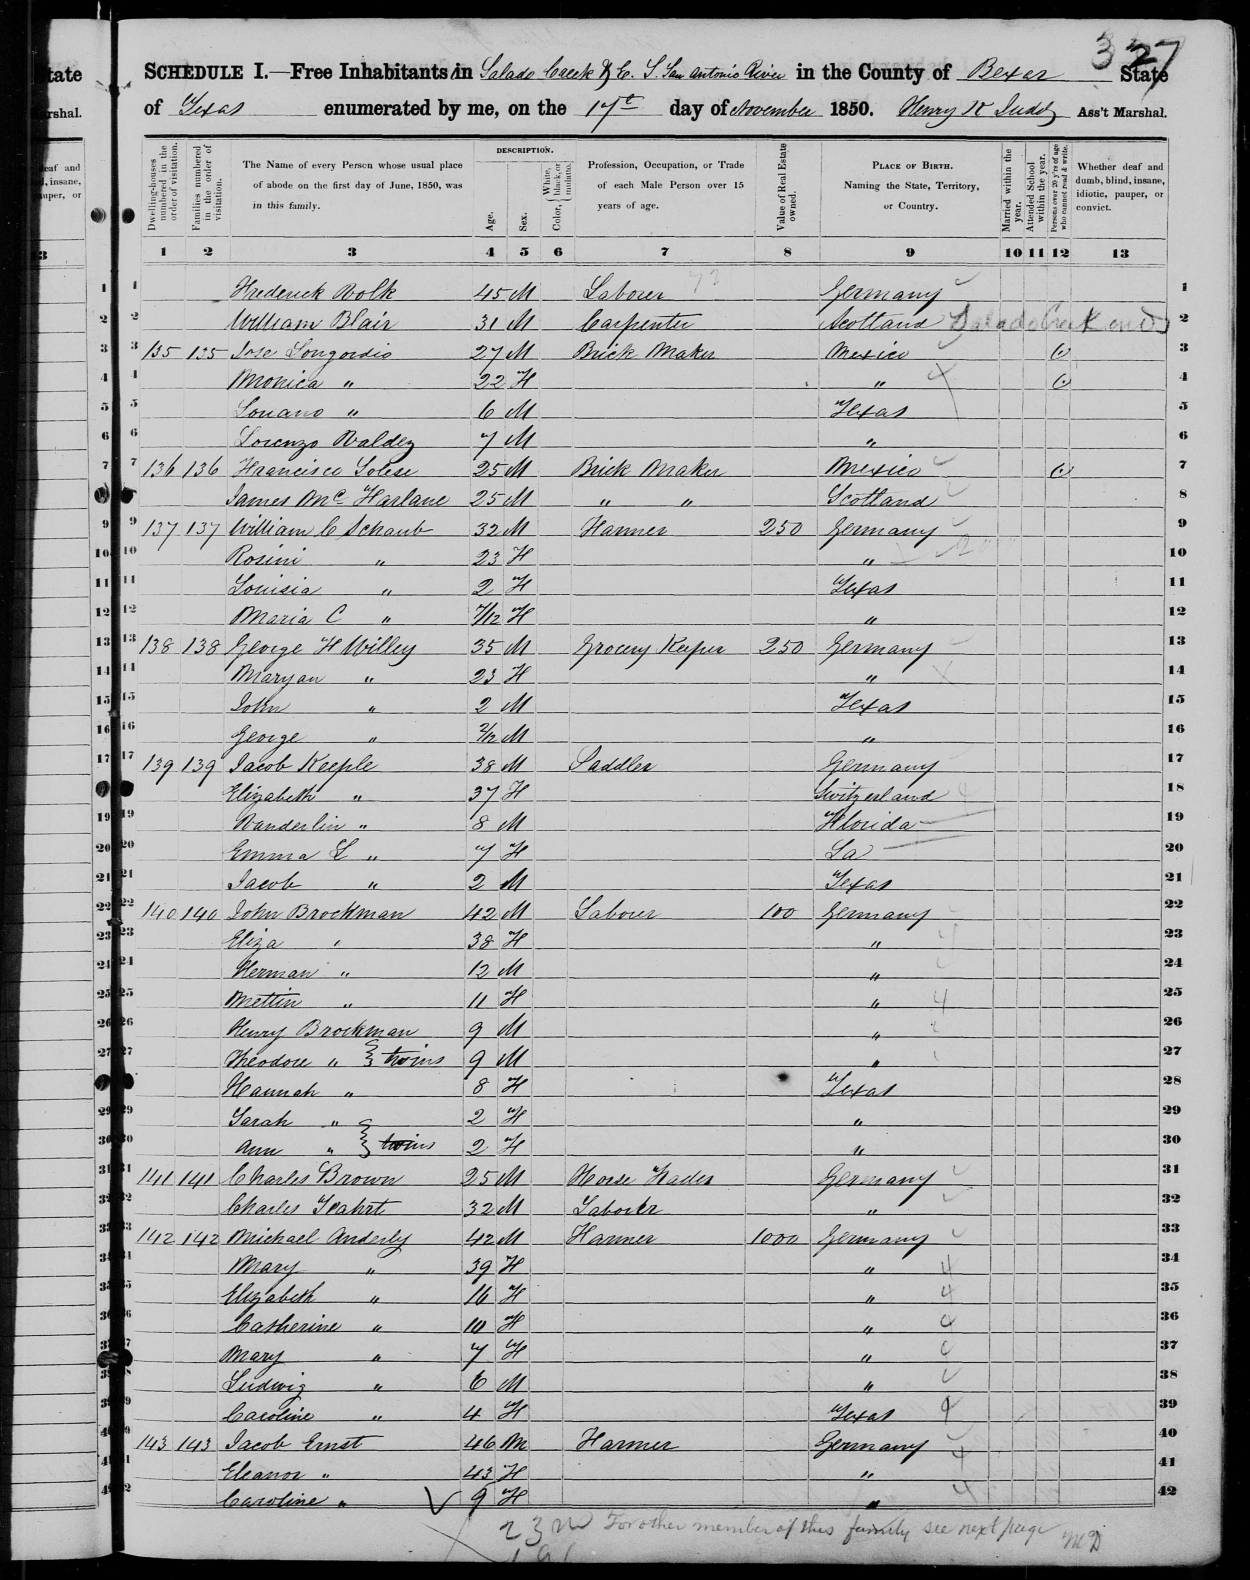 tate
327
SCHEDULE I.—Free Inhabitants in Salado Creek &c. S. San Antonio River in the County of Bexar State
arshal.
of Texas enumerated by me, on the 17th day of November 1850. Henry W Judd Ass't Marshal.
eaf and
d, insane,
auper, or
Dwelling-houses numbered in the order of visitation.
Families numbered in the order of visitation.
The Name of every Person whose usual place of abode on the first day of June, 1850, was in this family.
DESCRIPTION.
Age.
Sex.
Color, { White, black, or mulatto.
Profession, Occupation, or Trade of each Male Person over 15 years of age.
Value of Real Estate owned.
PLACE OF BIRTH.
Naming the State, Territory, or Country.
Married within the year.
Attended School within the year.
Persons over 20 y'rs of age who cannot read & write.
Whether deaf and dumb, blind, insane, idiotic, pauper, or convict.
1 2 3 4 5 6 7 8 9 10 11 12 13
1 Frederick Volk 45 M Laborer Germany 1
2 William Blair 31 M Carpenter Scotland Salado Creek 2
3 135 135 Jose Longordio 27 M Brick Maker Mexico 3
4 Monica " 22 F " 4
5 " 6 M Texas 5
6 Lorenzo Valdez 7 M " 6
7 136 136 Francisco Solese 25 M Brick Maker Mexico 7
James Mc Farlane 25 M " " Scotland 8
9 137 137 William C Schaub 32 M Farmer 250 Germany 9
10 Rosini " 23 F " 10
11 Louisia " 2 F Texas 11
12 Maria C " 7/12 F " 12
13 138 138 George F Willey 35 M Grocery Keeper 250 Germany 13
14 Maryan " 23 F " 14
15 John " 2 M Texas 15
16 George " 2/12 M " 16
17 139 139 Jacob Keeple 38 M Saddler Germany 17
Elizabeth " 37 F Switzerland 18
19 Vanderlin " 8 M Florida 19
20 Emma L " 7 F La 20
21 Jacob " 2 M Texas 21
22 140 140 John Brockman 42 M Laborer 100 Germany 22
23 Eliza " 38 F " 23
24 Herman " 12 M " 24
25 Mettin " 11 F " 25
26 Henry Brockman 9 M " 26
27 Theodore " } twins 9 M " 27
Hannah " 8 F Texas 28
29 Sarah " 2 F " 29
30 Ann " } twins 2 F " 30
31 141 141 Charles Brown 25 M Horse Trader Germany 31
32 Charles 32 M Laborer " 32
33 142 142 Michael Anderly 42 M Farmer 1000 Germany 33
34 Mary " 39 F " 34
35 Elizabeth " 16 F " 35
36 Catherine " 10 F " 36
37 Mary " 7 F " 37
38 Ludwig " 6 M " 38
39 Caroline " 4 F Texas 39
40 143 143 Jacob Ernst 46 M Farmer Germany 40
41 Eleanor " 43 F " 41
42 Caroline " 9 F " 42
23 For other member of this family see next page McD